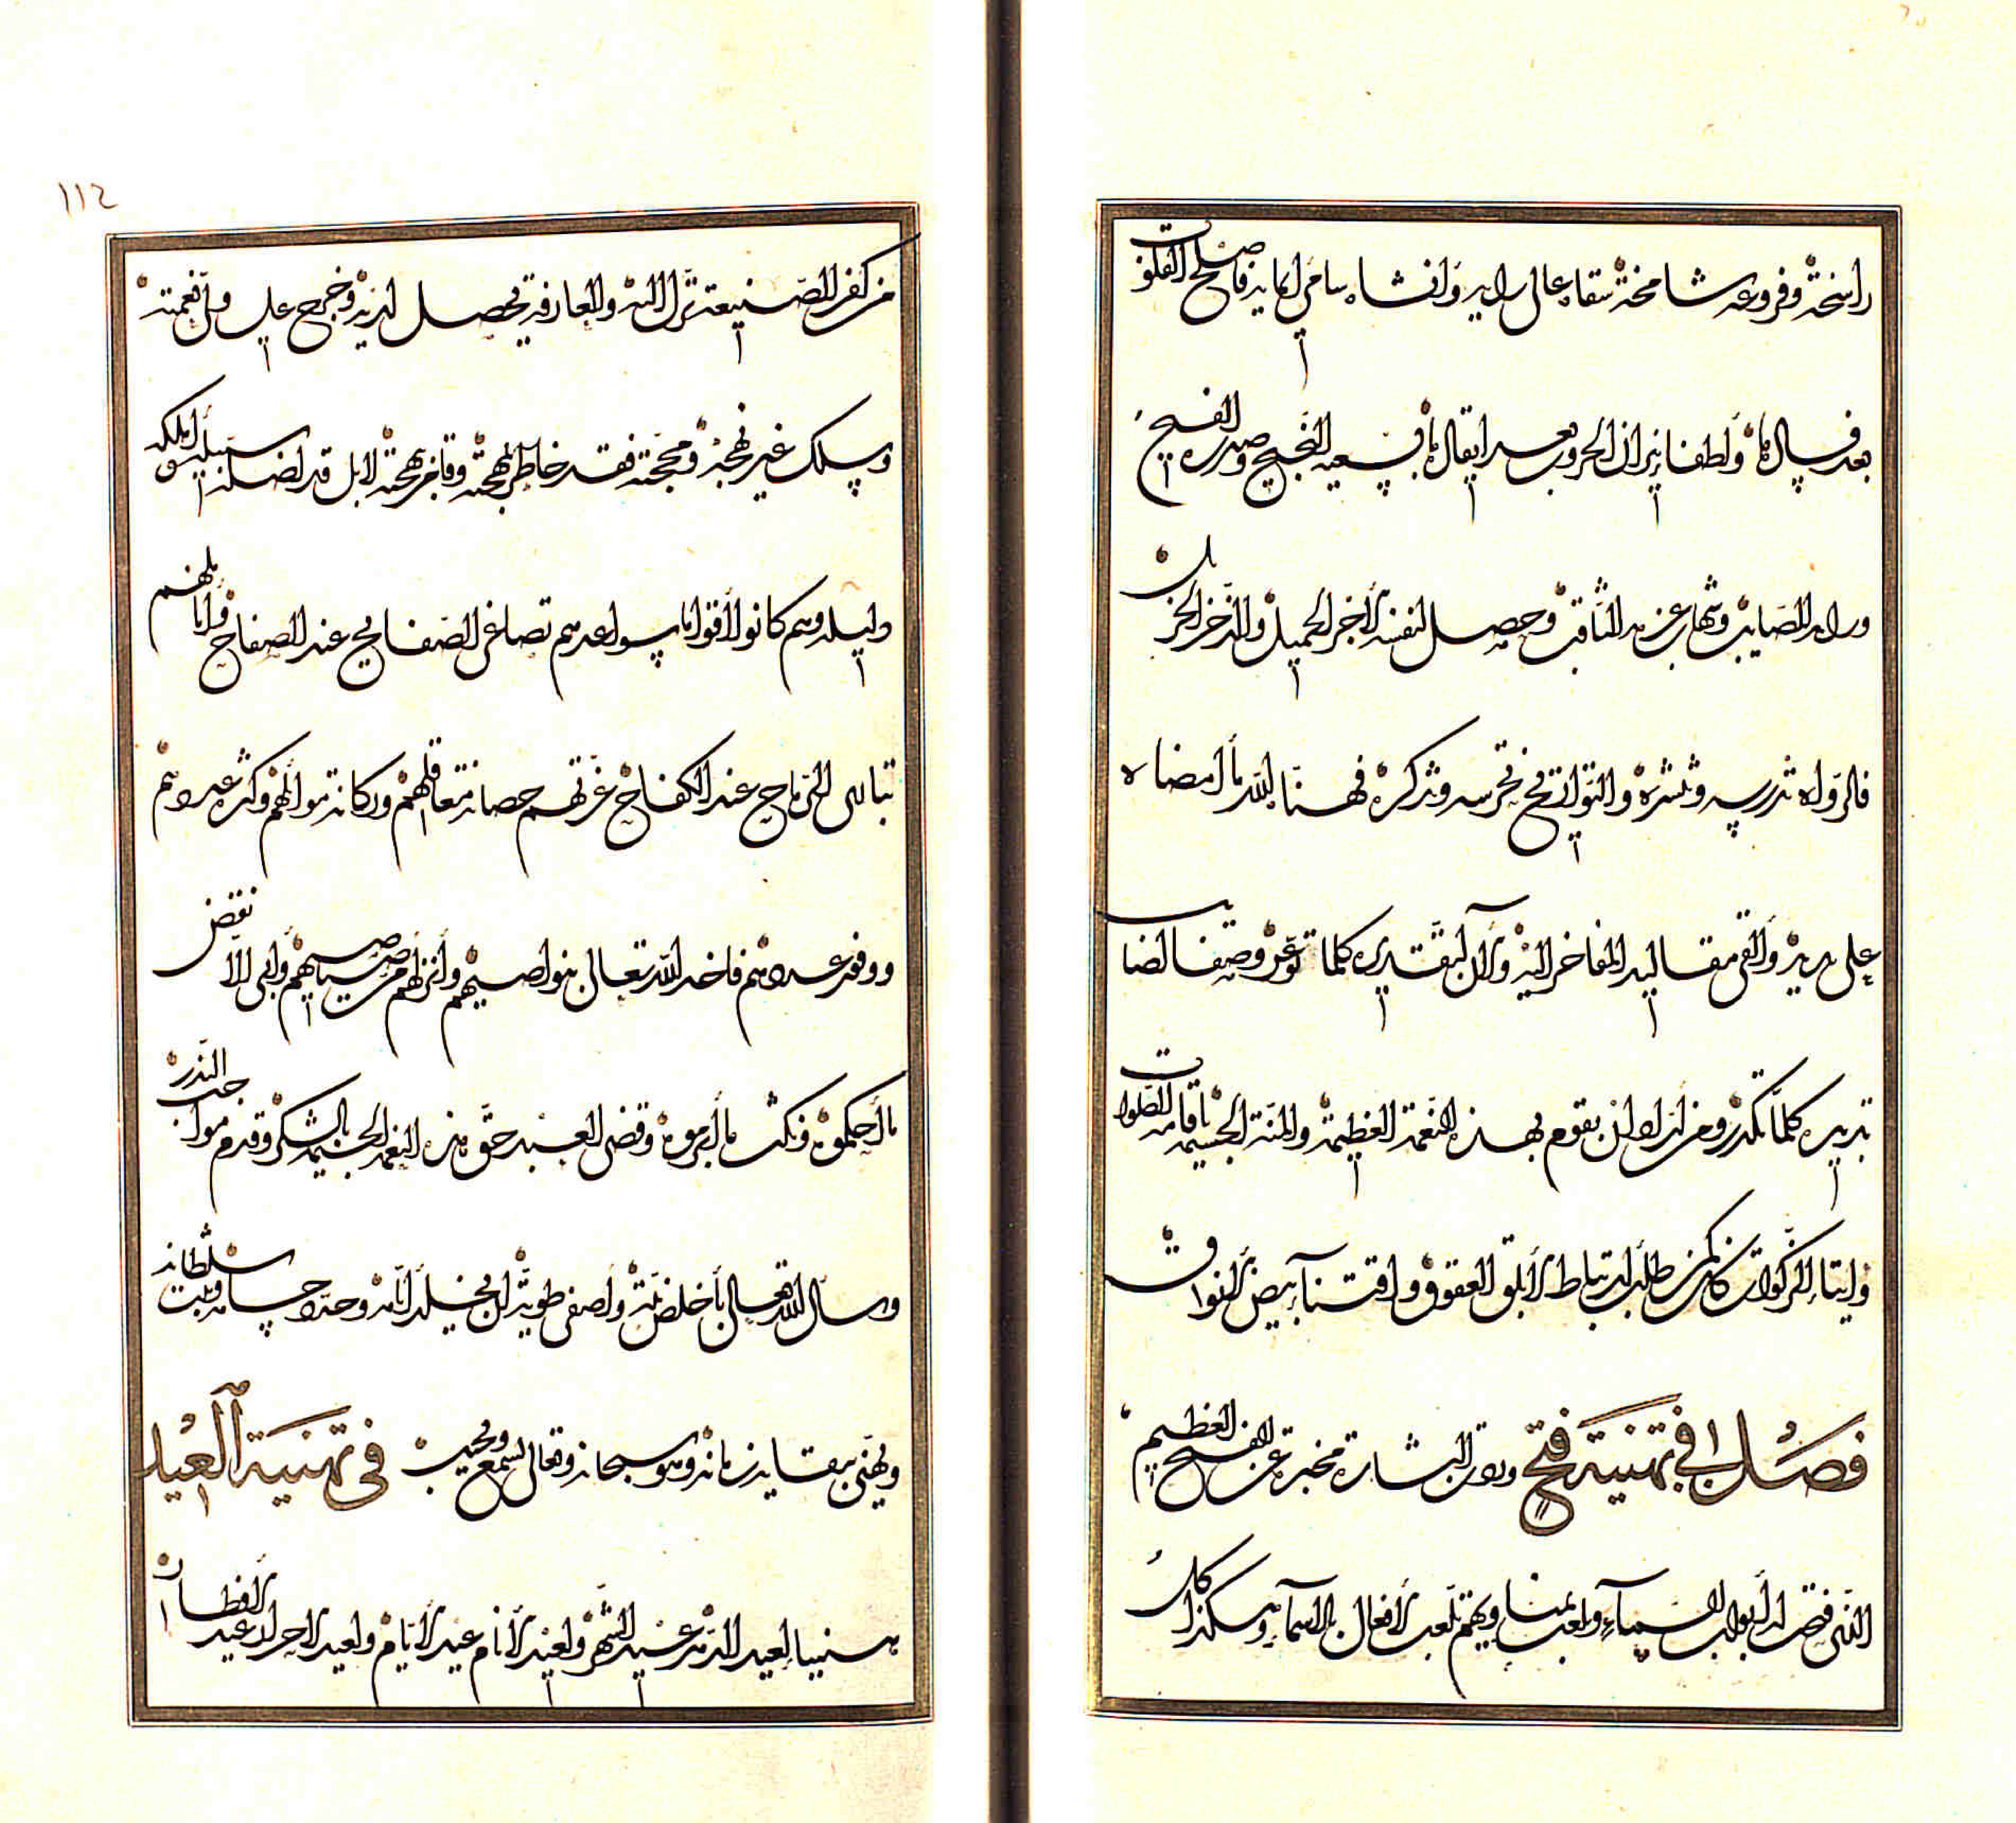 راسخة وفروعه شامخة سقاه عالى رايه وأنشاه سامى مكانه فاصلح القلوب
بعد فسادها وأطفا نيران الحروب بعد ايقادها بسعيه النجيح وصدره الفسيح
ورايه الصايب وشهاب عزمه الثاقب وحصل لنفسه الأجر الجميل والذخر الجزيل
فالرواه تدرسه وتنشره والتواريخ تحرسه وتذكره فهناه الله ما امضاه
على يديه وألقى مقاليد المفاخر اليه وألان لتقديره كلما توعر وصفا لضايب
تدبيره كلما تكدر ومن له أن يقوم بهذه النعمة العظيمة والمنة الجسيمة باقامة الصلوات
وإيتاء الزكوات كان كمن طلب ارتباط الأبلق العقوق واقتناء بيض الأنوق
فصل في تهنية فتح وردت البشارة مخبرة عن الفتح العظيم
الذى فتحت له أبواب السماء ولعب بمناويهم تلعب الأفعال بالاسماء وهكذا كل
١١٢
من كفر الصنيعة ترك الله والعارفة تحصل لديه وخرج على ولى نعمته
وسلك غير نهجه ومحجته فقد خاطر بمهجته وفاخر ببهجته لا بل قد اضلته ابليس الملكه
دليله وهم كانوا أقواما سواعدهم تصاغى الصفايح عند الصفاح واناملهم
تبارى الرماح عند الكفاح غرتهم حصانة معاقلهم وركانة موايلهم وكثرة عددهم
ووفد عددهم فاخذ الله تعالى بنواصيهم وأنزلهم من صياصيهم وأبى الا نقض
ما أحكموه ونكث ما أبرموه وقضى العبد حق هذه النعمة الجسيمة بالشكر وقدم مواجب النذر
وسأل الله تعالى بأخلص نية وأصفى طوية أن يخلد أيامه وحده حسامه ويثبت سلطانه
ويهنى ببقايه زمانه وهو سبحانه وتعالى يسمع ويجيب في تهنية العيد
هنيا لعيد الدهر عيد الشهر ولعيد الأنام عيد الأيام ولعيد الاحرار عيد الافطار